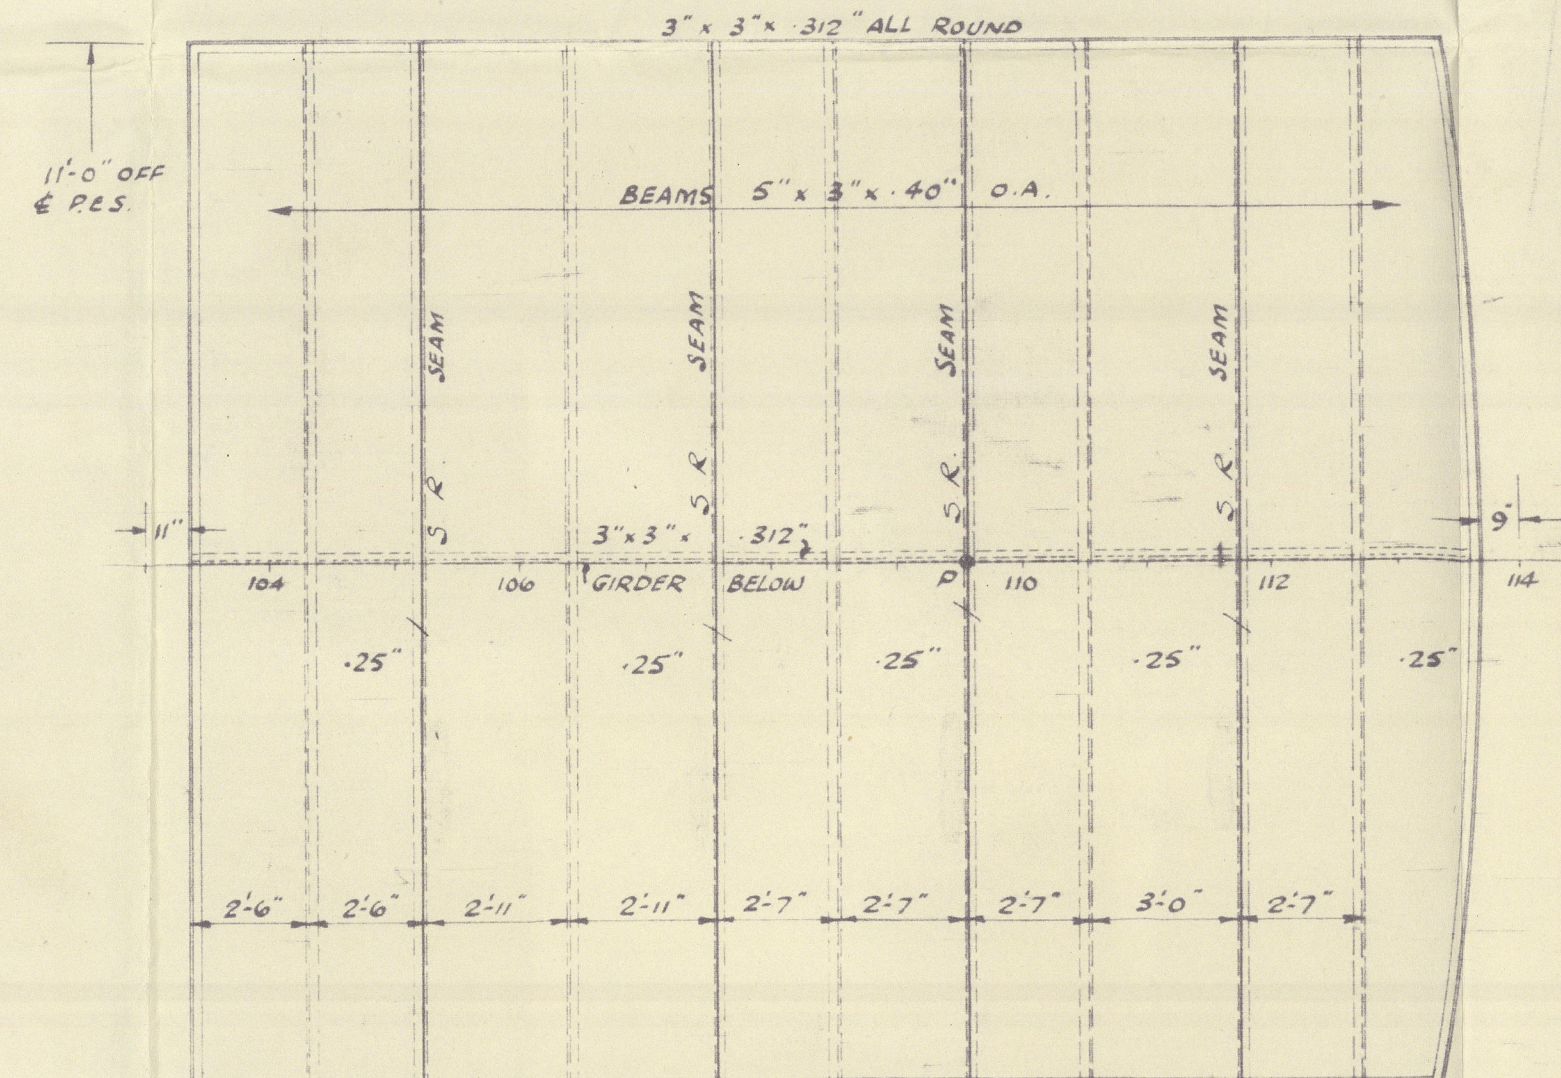 3" x 3" x .312" ALL ROUND
11'-0" OFF
℄ P.&S.
BEAMS 5" x 3" x .40" O.A.
SEAM
SEAM
SEAM
SEAM
S R.
S R.
S R.
S R.
11"
3" x 3" x .312"
9"
104
106
GIRDER BELOW
P
110
112
114
.25"
.25"
.25"
.25"
.25"
2'-6"
2'-6"
2'-11"
2'-11"
2'-7"
2'-7"
2'-7"
3'-0"
2'-7"